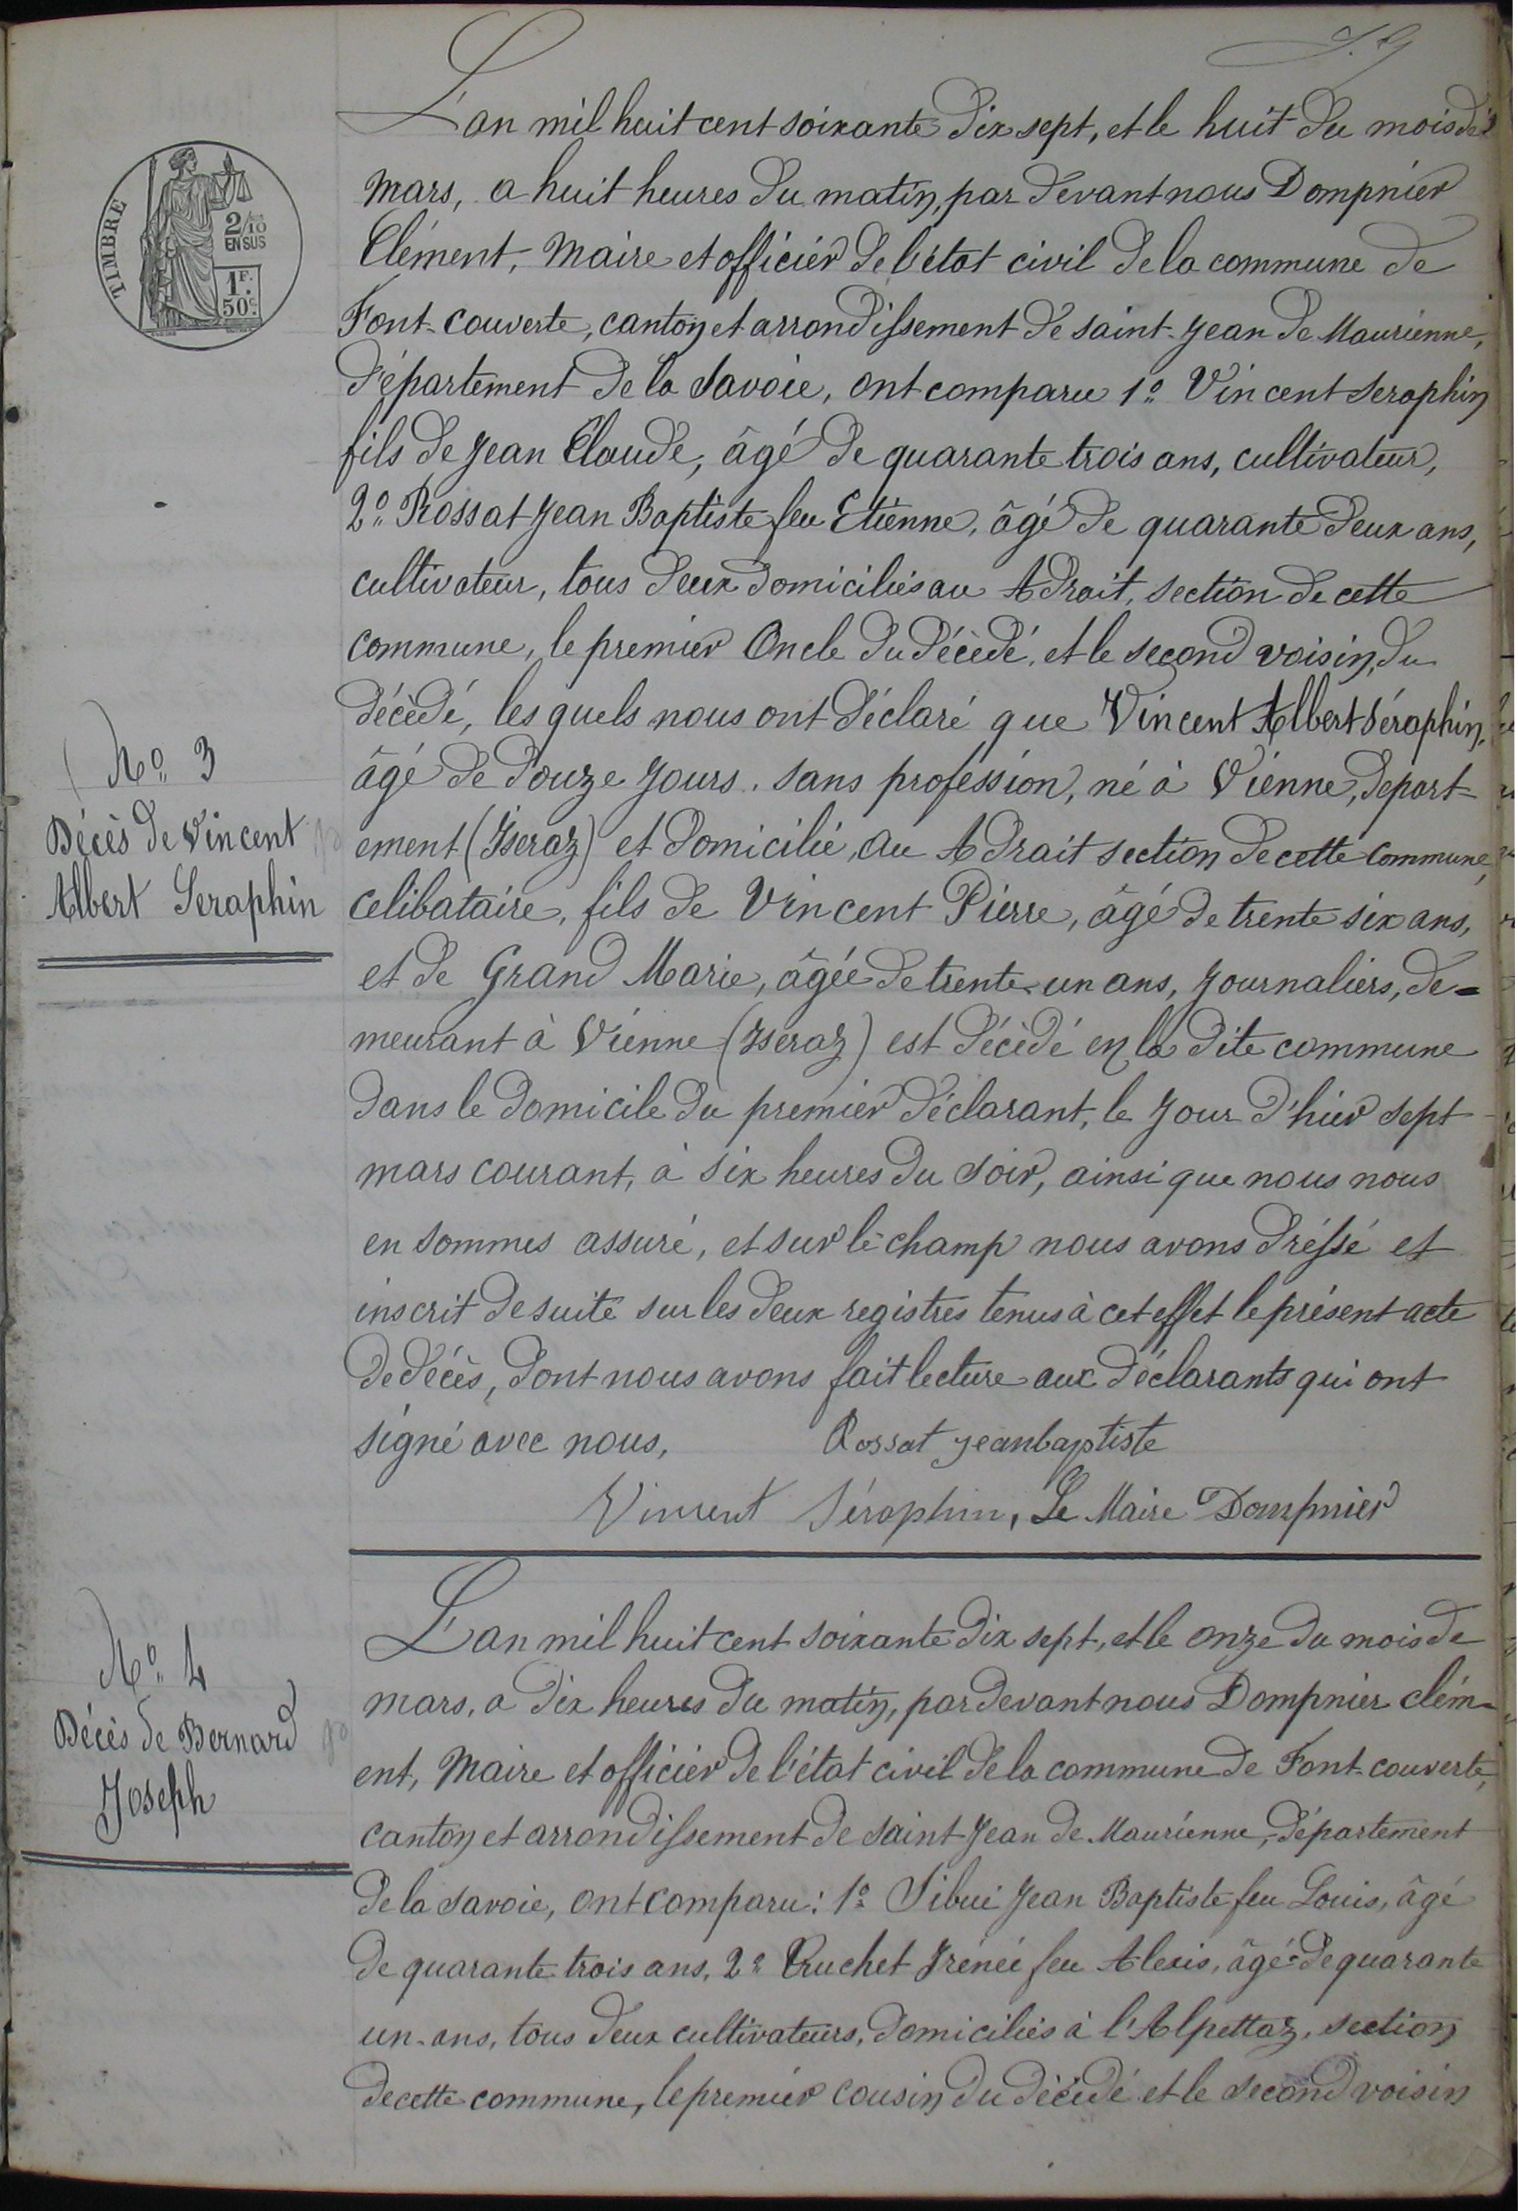 S. G
TIMBRE
2/10
EN SUS
1F.
50c.
L'an mil huit cent soixante dix sept, et le huit du mois de
mars, a huit heures du matin, par devant nous Dompnier
Clément, Maire et officier de l'état civil de la commune de
Font-couverte, canton et arrondissement de saint-Jean de Maurienne,
département de la Savoie, ont comparu 1º Vincent Seraphin
fils de Jean Claude, âgé de quarante trois ans, cultivateur,
2º Rossat Jean Baptiste feu Etienne, âgé de quarante deux ans,
cultivateur, tous deux domiciliés au Adrait, section de cette
commune, le premier Oncle du décèdé, et le second voisin, du
décèdé, les quels nous ont déclaré que Vincent Albert Séraphin,
Nº 3
Décès de Vincent
Albert Seraphin
âgé de douze jours, sans profession, né à Vienne, départ-
ement (Iseraz) et domicilié, au Adrait section de cette commune,
celibataire, fils de Vincent Pierre, âgé de trente six ans,
et de Grand Marie, âgée de trente-un ans, Journaliers, de-
meurant à Vienne (Iseraz) est décèdé en la dite commune
dans le domicile du premier déclarant, le jour d'hier sept
mars courant, à six heures du soir, ainsi que nous nous
en sommes assuré, et sur le champ nous avons dréssé et
inscrit de suite sur les deux registres tenus à cet effet le présent acte
de décès, dont nous avons fait lecture aux déclarants qui ont
signé avec nous, Rossat jeanbaptiste
Vincent Séraphin, Le Maire Dompnier
Nº 4
Décès de Bernard
Joseph
L'an mil huit cent soixante dix sept, et le onze du mois de
mars, a dix heures du matin, par devant nous Dompnier clém-
ent, Maire et officier de l'état civil de la commune de Font-couverte,
canton et arrondissement de saint Jean de Maurienne, département
de la savoie, ont comparu: 1º Sibué Jean Baptiste feu Louis, âgé
de quarante trois ans, 2º Truchet Irénée feu Alexis, âgé de quarante
un-ans, tous deux cultivateurs, domiciliés à l'Alpettaz, section
de cette commune, le premier cousin du décédé et le second voisin